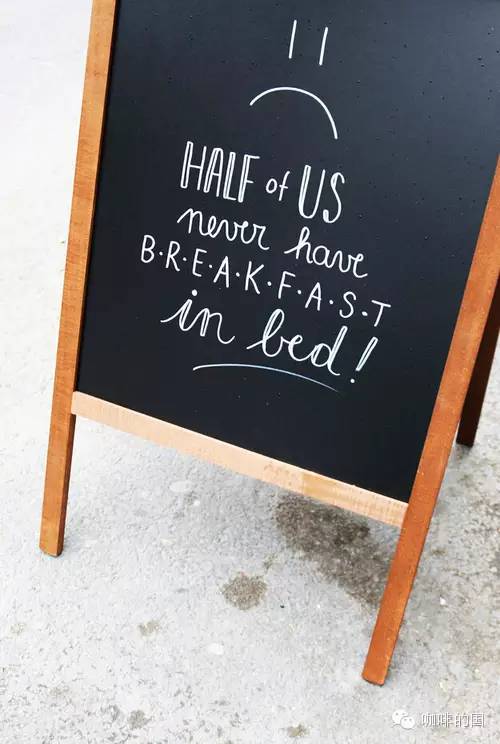 HALF of US
never have
B·R·E·A·K·F·A·S·T
in bed!
咖啡的国